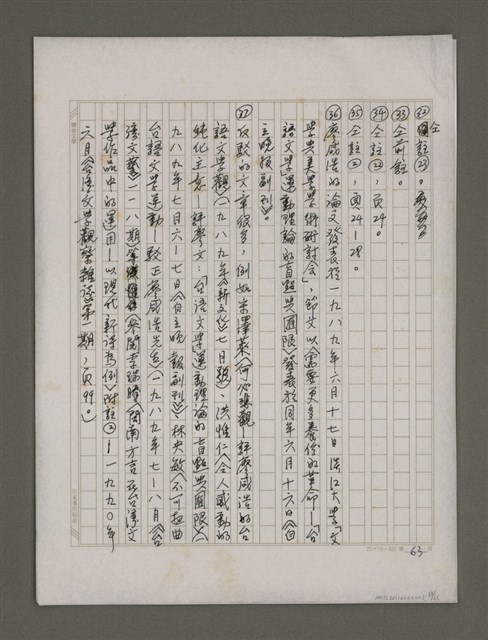 ㉜仝註㉓。
㉝仝前註。
㉞仝註㉒，頁24。
㉟仝註②，頁24—28。
㊱廖咸浩的論文發表於一九八九年六月十七日淡江大學「文
學與美學學術研討會」，節文以〈需要更多養份的革命—「台
語文學」運動理論的盲點與囿限〉發表於同年六月十六日《自
立晚報副刊》。
㊲反駁的文章很多，例如宋澤萊〈何必悲觀—評廖咸浩的台
語文學觀〉（一九八九年《新文化》七月號）、洪惟仁〈令人感動的
純化主義—評廖文：「台語文學」運動理論的盲點與囿限〉（一
九八九年七月六—七日《自立晚報副刊》）林央敏〈不可扭曲
台語文學運動—駁正廖咸浩先生〉（一九八九年七—八月《台
灣文藝》一一八期）。參閱李瑞騰〈閩南方言在台灣文
學作品中的運用—以現代新詩為例〉附註②—一九九〇年
六月《台灣文學觀察雜誌》第一期，頁99。
63